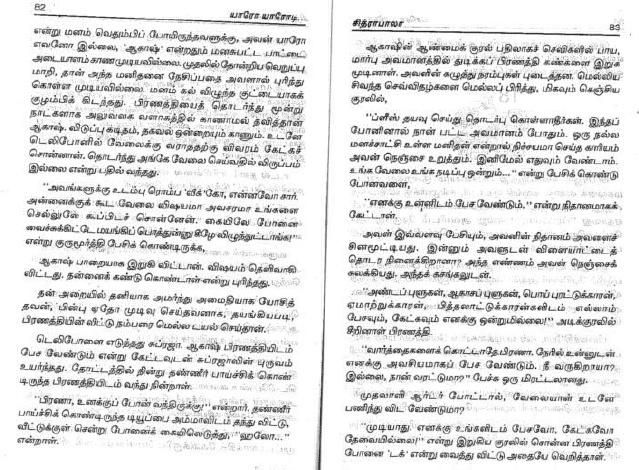 82 யாரோ யாரோடி
என்று மனம் வெதும்பிப் போயிருந்தவளுக்கு, அவன் யாரோ
எவனோ இல்லை, 'ஆகாஷ்' என்றதும் மனசுபட்ட பாட்டை
அடையாளம் காணமுடியவில்லை. முதலில் தோன்றிய வெறுப்பு
மாறி, தான் அந்த மனிதனை நேசிப்பதை அவளால் புரிந்து
கொள்ள முடியவில்லை. மனம் கல் விழுந்த குட்டையாகக்
குழம்பிக் கிடந்தது. பிரணத்தியைத் தொடர்ந்து மூன்று
நாட்களாக அலுவலக வளாகத்தில் காணாமல் தவித்தான்
ஆகாஷ். விடுப்பு கடிதம், தகவல் ஒன்றையும் காணும். உடனே
டெலிபோனில் வேலைக்கு வராததற்கு விவரம் கேட்கச்
சொன்னான். தொடர்ந்து அங்கே வேலை செய்வதில் விருப்பம்
இல்லை என்று பதில் வந்தது.
"அவங்களுக்கு உடம்பு ரொம்ப 'வீக்'கோ, என்னவோ சார்.
அன்னைக்குக் கூட வேலை விஷயமா அவசரமா உங்களை
செல்லுலே கூப்பிடச் சொன்னேன். கையிலே போனை
வைச்சுக்கிட்டே மயங்கிப் பொத்துன்னு கீழே விழுந்துட்டாங்க!"
என்று குருமூர்த்தி பேசிக் கொண்டிருக்க,
ஆகாஷ் பாறையாக இறுகி விட்டான். விஷயம் தெளிவாகி
விட்டது. தன்னைக் கண்டு கொண்டாள் என்று புரிந்தது.
தன் அறையில் தனியாக அமர்ந்து அமைதியாக யோசித்
தவன், பின்பு ஏதோ முடிவு செய்தவனாக, தயங்கியபடி,
பிரணத்தியின் வீட்டு நம்பரை மெல்ல டயல் செய்தான்.
டெலிபோனை எடுத்தது சுப்ரஜா. ஆகாஷ் பிரணத்தியிடம்
பேச வேண்டும் என்று கேட்டவுடன் சுப்ரஜாவின் புருவம்
உயர்ந்தது. தோட்டத்தில் நின்று தண்ணீர் பாய்ச்சிக் கொண்
டிருந்த பிரணத்தியிடம் வந்து நின்றாள்.
"பிரணா, உனக்குப் போன் வந்திருக்கு!" என்றார். தண்ணீர்
பாய்ச்சிக் கொண்டிருந்த டியூப்பை அம்மாவிடம் தந்து விட்டு,
வீட்டுக்குள் சென்று போனைக் கையிலெடுத்து, "ஹலோ..."
என்றாள்.
சித்ராபாலா 83
ஆகாஷின் ஆண்மைக் குரல் பதிலாகச் செவிகளில் பாய,
மார்பு அவமானத்தில் துடிக்கப் பிரணத்தி கண்களை இறுக
மூடினாள். அவளின் கழுத்து நரம்புகள் புடைத்தன. மெல்லிய
சிவந்த செவ்விதழ்களை மெல்லப் பிரித்து, மிகவும் கெஞ்சிய
குரலில்,
"ப்ளீஸ் தயவு செய்து தொடர்பு கொள்ளாதீர்கள். இந்தப்
போனினால் நான் பட்ட அவமானம் போதும். ஒரு நல்ல
மனசாட்சி உள்ள மனிதன் என்றால் நிச்சயமாய் செய்த காரியம்
அவன் நெஞ்சை உறுத்தும். இனிமேல் எதுவும் வேண்டாம்.
உங்க வேலை உங்க நடிப்பு ஒன்றும்..." என்று பேசிக் கொண்டு
போனவளை,
"எனக்கு உன்னிடம் பேச வேண்டும்." என்று நிதானமாகக்
கேட்டான்.
அவள் இவ்வளவு பேசியும், அவனின் நிதானம் அவளைச்
சினமூட்டியது. இன்னும் அவளுடன் விளையாட்டைத்
தொடர நினைக்கிறானா? அந்த எண்ணம் அவள் நெஞ்சைக்
கலக்கியது, அந்தக் கசங்கலுடன்.
"அண்டப் புளுகன், ஆகாசப் புளுகன், பொய் புரட்டுக்காரன்,
ஏமாற்றுக்காரன், பித்தலாட்டுக்காரன்களிடம் எல்லாம்
பேசவும், கேட்கவும் எனக்கு ஒன்றுமில்லை!" அடிக்குரலில்
சீறினாள் பிரணத்தி.
"வார்த்தைகளைக் கொட்டாதே பிரணா. நேரில் உன்னுடன்
எனக்கு அவசியமாகப் பேச வேண்டும். நீ வருகிறாயா?
இல்லை, நான் வரட்டுமா?" பேச்சு ஒரு மிரட்டலானது.
'முதலாளி ஆர்டர் போட்டால், வேலையாள் உடனே
பணிந்து விட வேண்டுமா?
"முடியாது! எனக்கு உங்களிடம் பேசவோ, கேட்கவோ
தேவையில்லை!" என்று இறுகிய குரலில் சொன்ன பிரணத்தி
போனை 'டக்' என்று வைத்து விட்டு அதையே வெறித்தாள்.